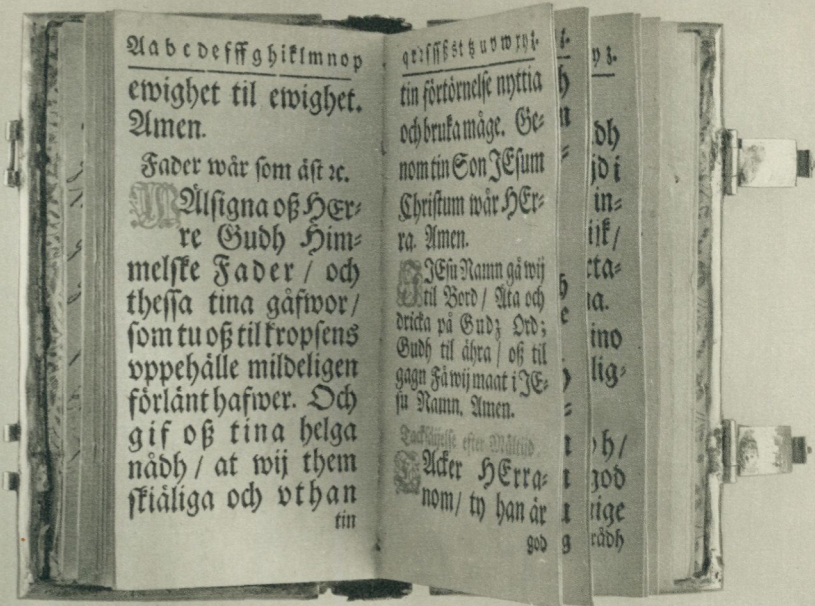 A a b c d e f ff g h i k l m n o p
ewighet til ewighet.
Amen.
Fader wår som äst ꝛc.
WÄlsigna oß HEr⸗
re Gudh Him⸗
melske Fader / och
thessa tina gåfwor /
som tu oß til kropsens
vppehälle mildeligen
förlänt hafwer. Och
gif oß tina helga
nådh / at wij them
skiäliga och vthan
tin
tin förtörnelse nyttia
och bruka måge. Ge⸗
nom tin Son JEsum
Christum wår HEr⸗
ra. Amen.
IJEsu Namn gå wij
til Bord / Äta och
dricka på Gudz Ord;
Gudh til ähra / oß til
gagn Få wij maat i JE⸗
su Namn. Amen.
Tacksäyelse efter Måltijd
TAcker HErra⸗
nom / ty han är
god
dh
jd i
in⸗
isk /
cta⸗
na.
ino
lig⸗
h /
god
nige
rådh